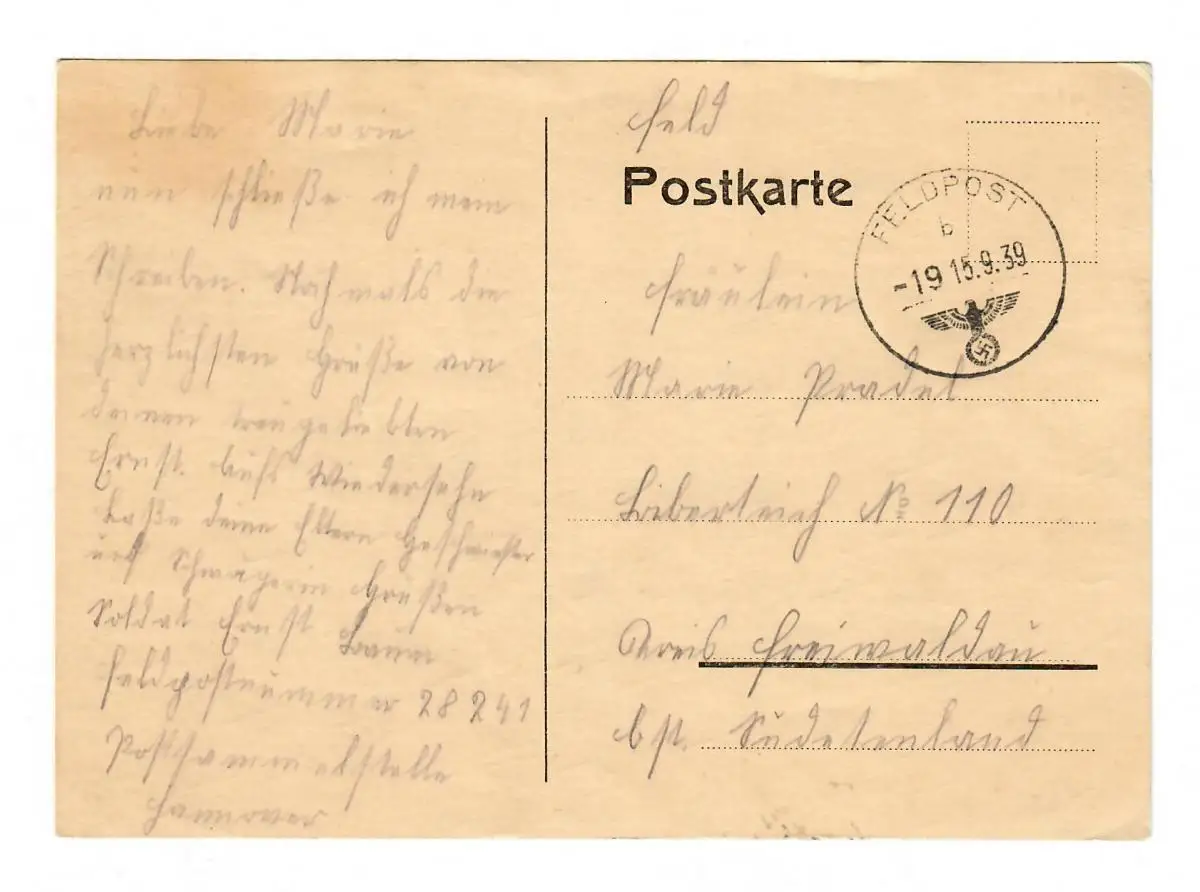 Liebe Marie
nun schließe ich mein
Schreiben. Noch mals die
herzlichsten Grüße von
deinen treugeliebten
Ernst. Aufs Wiedersehn
Laße deine Eltern Geschwister
und Schwägerin Grüßen
Soldat Ernst
Feldpostnummer 28241
Postsammelstelle
Hannover
Feld
Postkarte
FELDPOST
b
-19 15.9.39
Fräulein
Marie Pradel
Biberteich No 110
Kreis Freiwaldau
Sudetenland